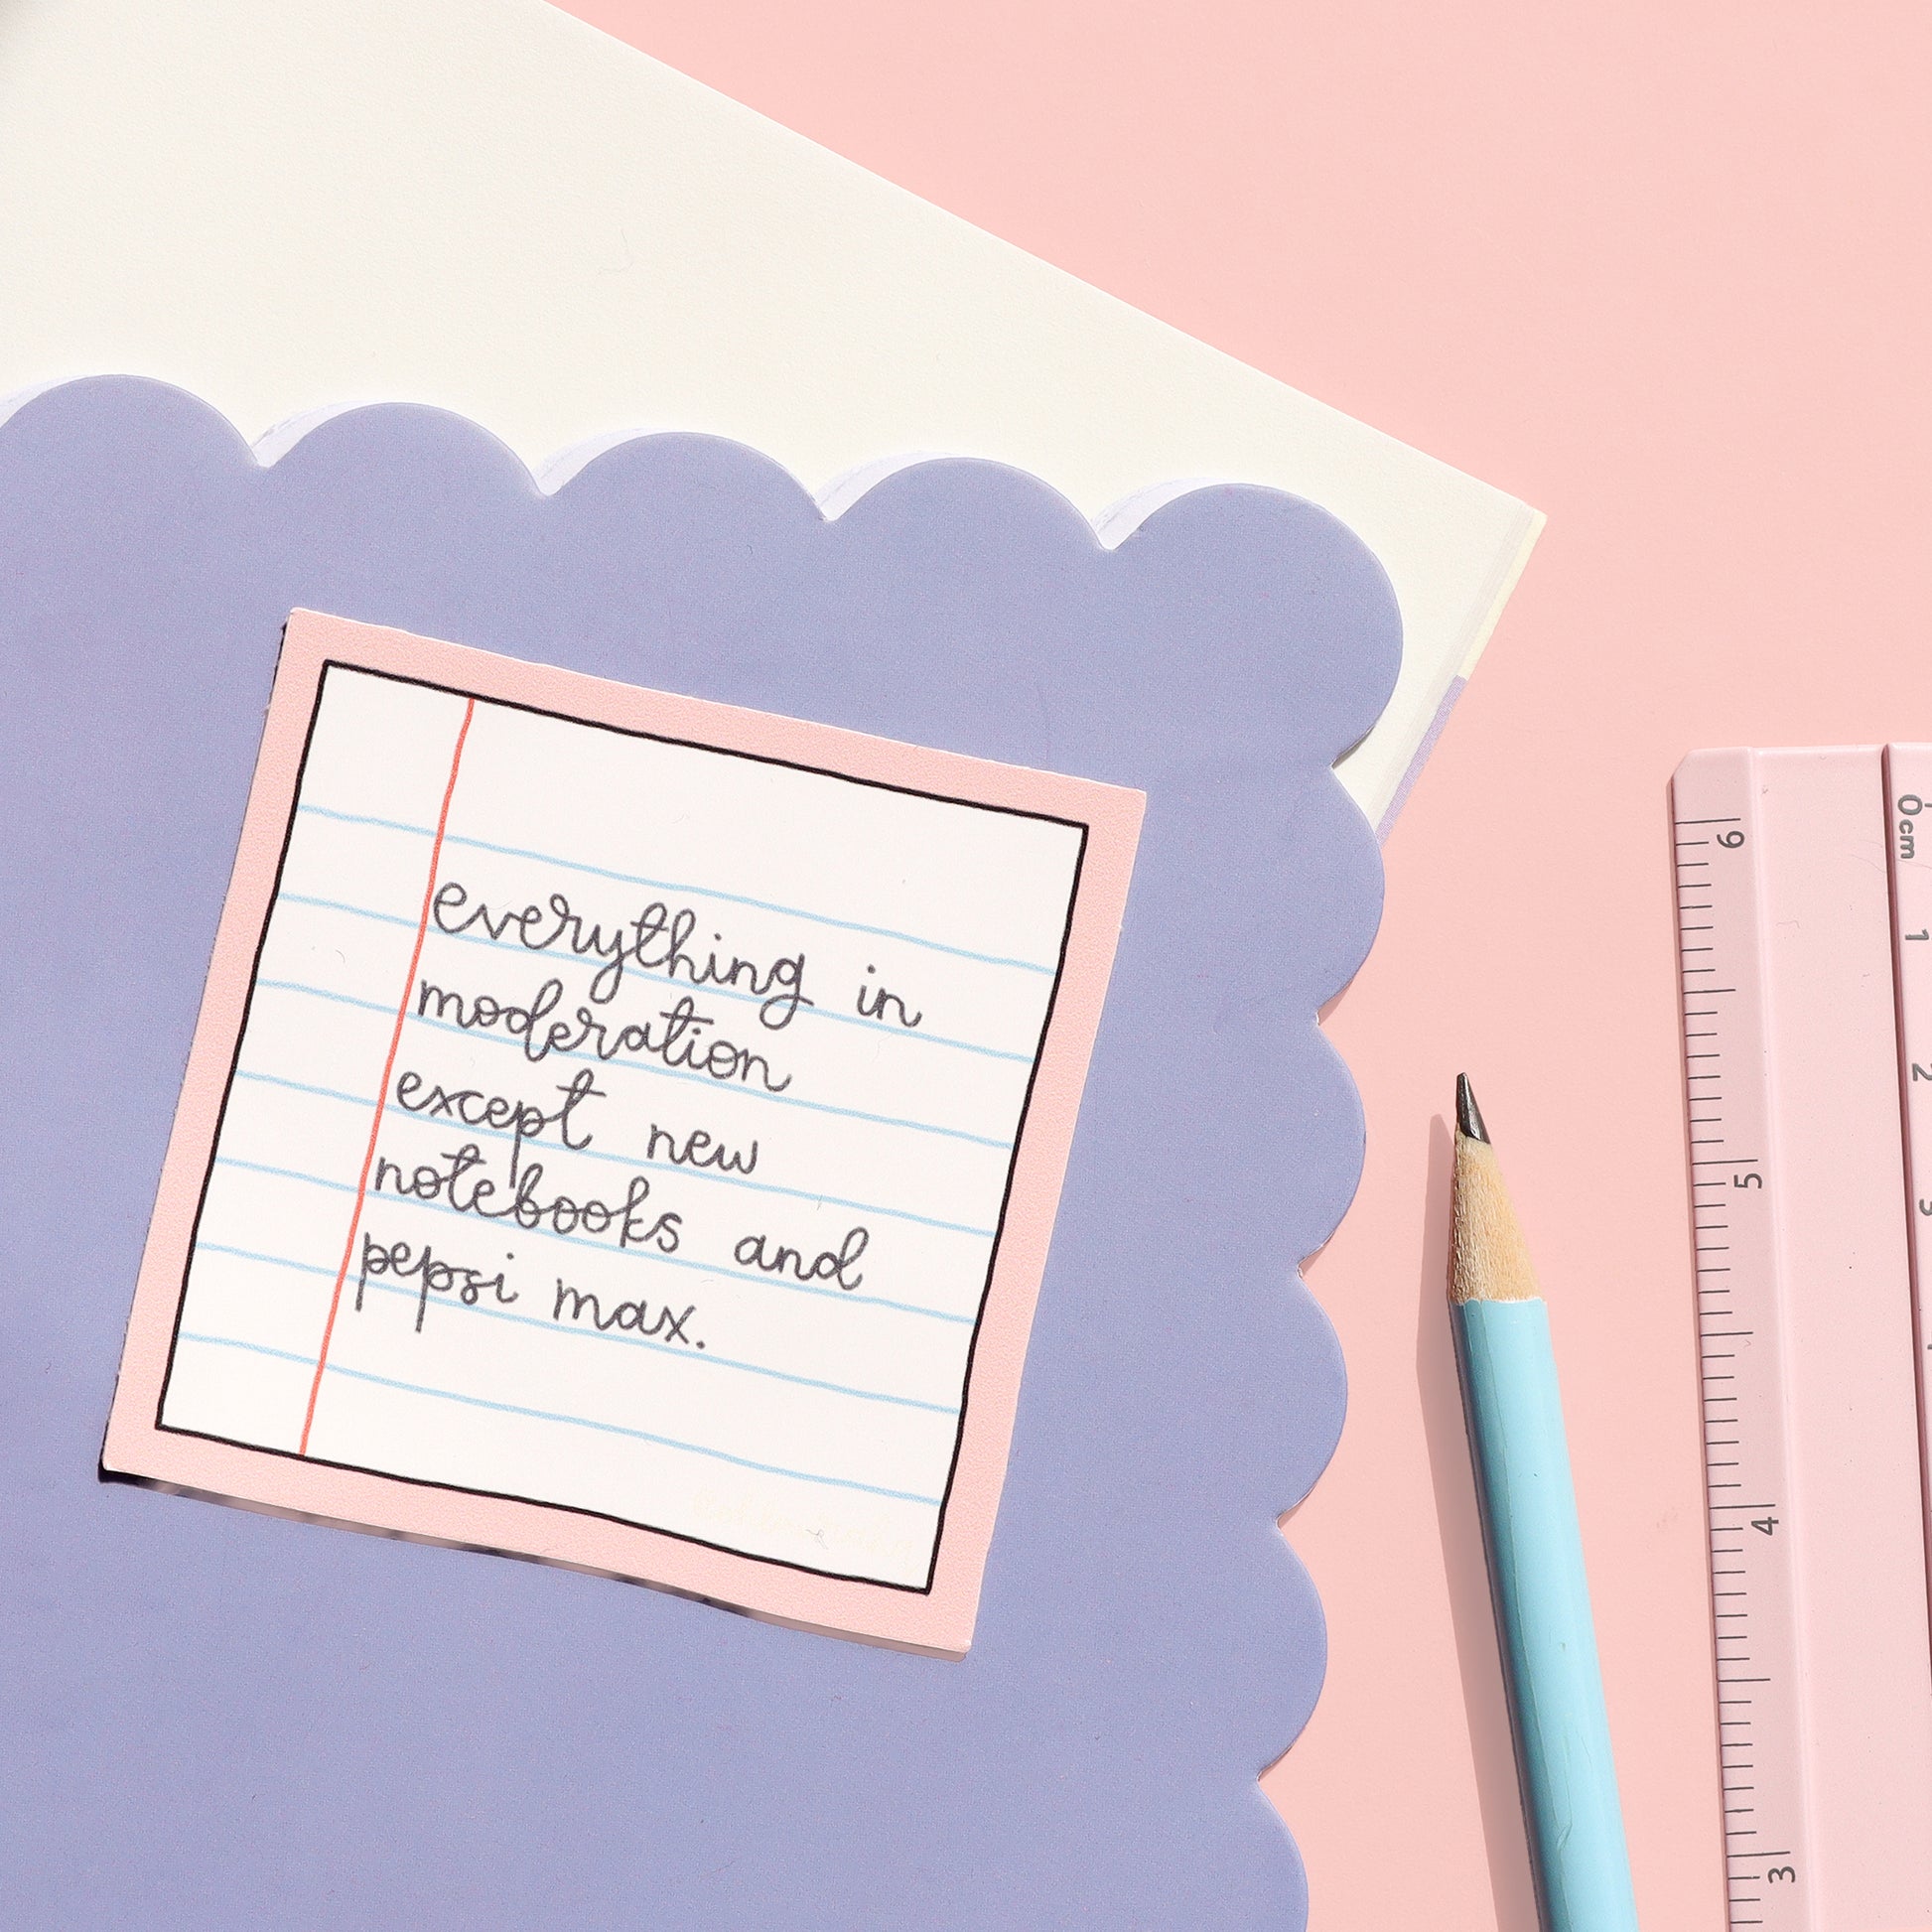 everything in
moderation
except new
notebooks and
pepsi max.
6
5
4
3
0cm
1
2
3